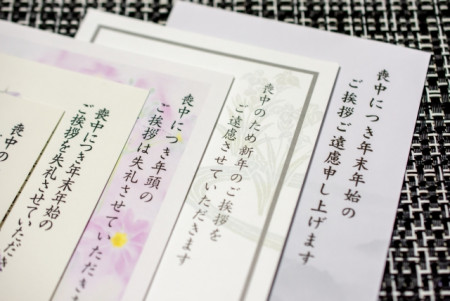 喪中につき年末年始の
ご挨拶ご遠慮申し上げます
喪中のため新年のご挨拶を
ご遠慮させていただきます
喪中につき年頭の
ご挨拶は失礼させていただきます
喪中につき年末年始の
ご挨拶を失礼させていただき
喪中の